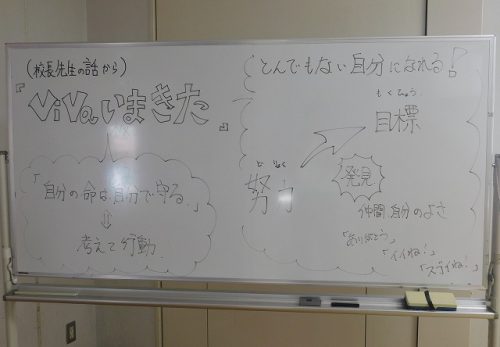 (校長先生の話から)
『ViVaいまきた』
「自分の命は、自分で守る。」
⇓
考えて行動
とんでもない自分になれる!
もくひょう
目標
どりょく
努力
発見
仲間、自分のよさ
「ありがとう」
「イイね!」
「スゴイね!」